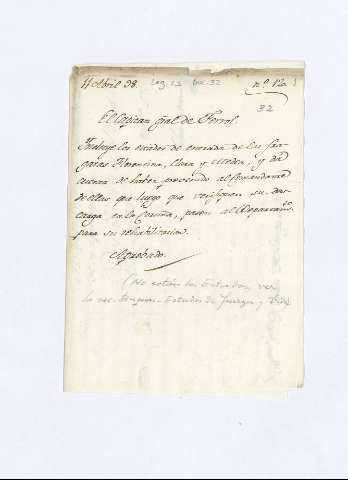 11 Abril 98. Leg 13 Doc. 32 nº 120
32
El Capitan gral de Ferrol.
Incluye los estados de entrada de las fra-
gatas Florentina, Clara y Medea, y da
cuenta de haber prevenido al Comandante
de ellas que luego que verifiquen su des-
carga en la Coruña, pasen al Departamto.
para su rehabilitacion.
Aprobado.
(No están los Estados, ver
la sec. Buques - Estados de fuerza y vida)